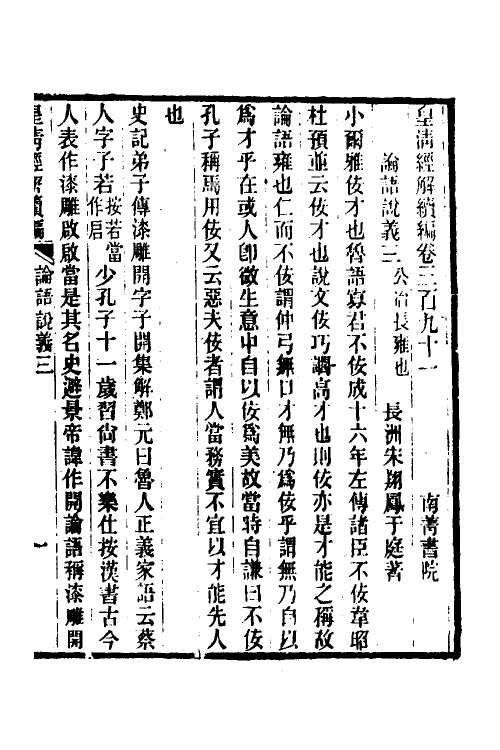 皇淸經解續編卷三百九十一　南菁書院
論語說義三　公冶長雍也　長洲宋翔鳳于庭著
小爾雅佞才也魯語寡君不佞成十六年左傳諸臣不佞韋昭
杜預並云佞才也說文佞巧讇高才也則佞亦是才能之稱故
論語雍也仁而不佞謂仲弓無口才無乃爲佞乎謂無乃自以
爲才乎在或人卽微生意中自以佞爲美故當時自謙曰不佞
孔子稱焉用佞又云惡夫佞者謂人當務實不宜以才能先人
也
史記弟子傳漆雕開字子開集解鄭元曰魯人正義家語云蔡
人字子若按若當作启少孔子十一歲習尙書不樂仕按漢書古今
人表作漆雕啟啟當是其名史避景帝諱作開論語稱漆雕開
皇淸經解續編　論語說義三　一